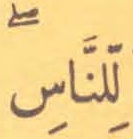 لِّلنَّاسِ ۖ